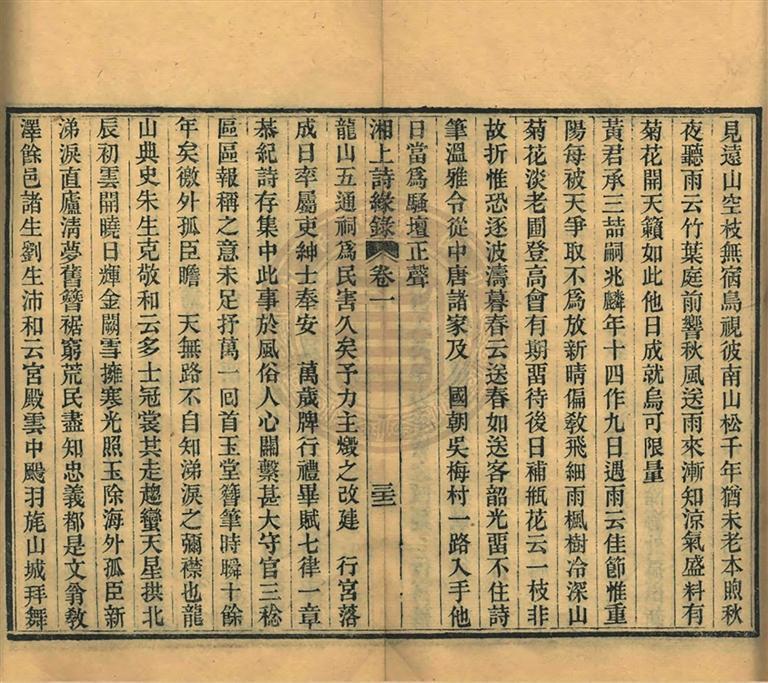 見遠山空枝無宿鳥視彼南山松千年猶未老本煦秋
夜聽雨云竹葉庭前響秋風送雨來漸知涼氣盛料有
菊花開天籟如此他日成就烏可限量
黃君承三喆嗣兆麟年十四作九日遇雨云佳節惟重
陽每被天爭取不爲放新晴偏教飛細雨楓樹冷深山
菊花淡老圃登高會有期畱待後日補紙花云一枝非
故折惟恐逐波濤暮春云送春如送客韶光畱不住詩
筆溫雅令從中唐諸家及 國朝吳梅村一路入手他
日當爲騷壇正聲
湘上詩緣錄 卷一 三三
龍山五通祠爲民害久矣予力主燬之改建 行宮落
成日率屬吏紳士奉安 萬歲牌行禮畢賦七律一章
恭紀詩存集中此事於風俗人心關繫甚大守官三稔
區區報稱之意未足抒萬一回首玉堂簪筆時瞬十餘
年矣徼外孤臣瞻 天無路不自知涕淚之彌襟也龍
山典史朱生克敬和云多士冠裳共走趨蠻天星拱北
辰初雲開曉日輝金闕雪擁寒光照玉除海外孤臣新
涕淚直廬淸夢舊簪裾窮荒民盡知忠義都是文翁敎
澤餘邑諸生劉生沛和云宮殿雲中颺羽旄山城拜舞